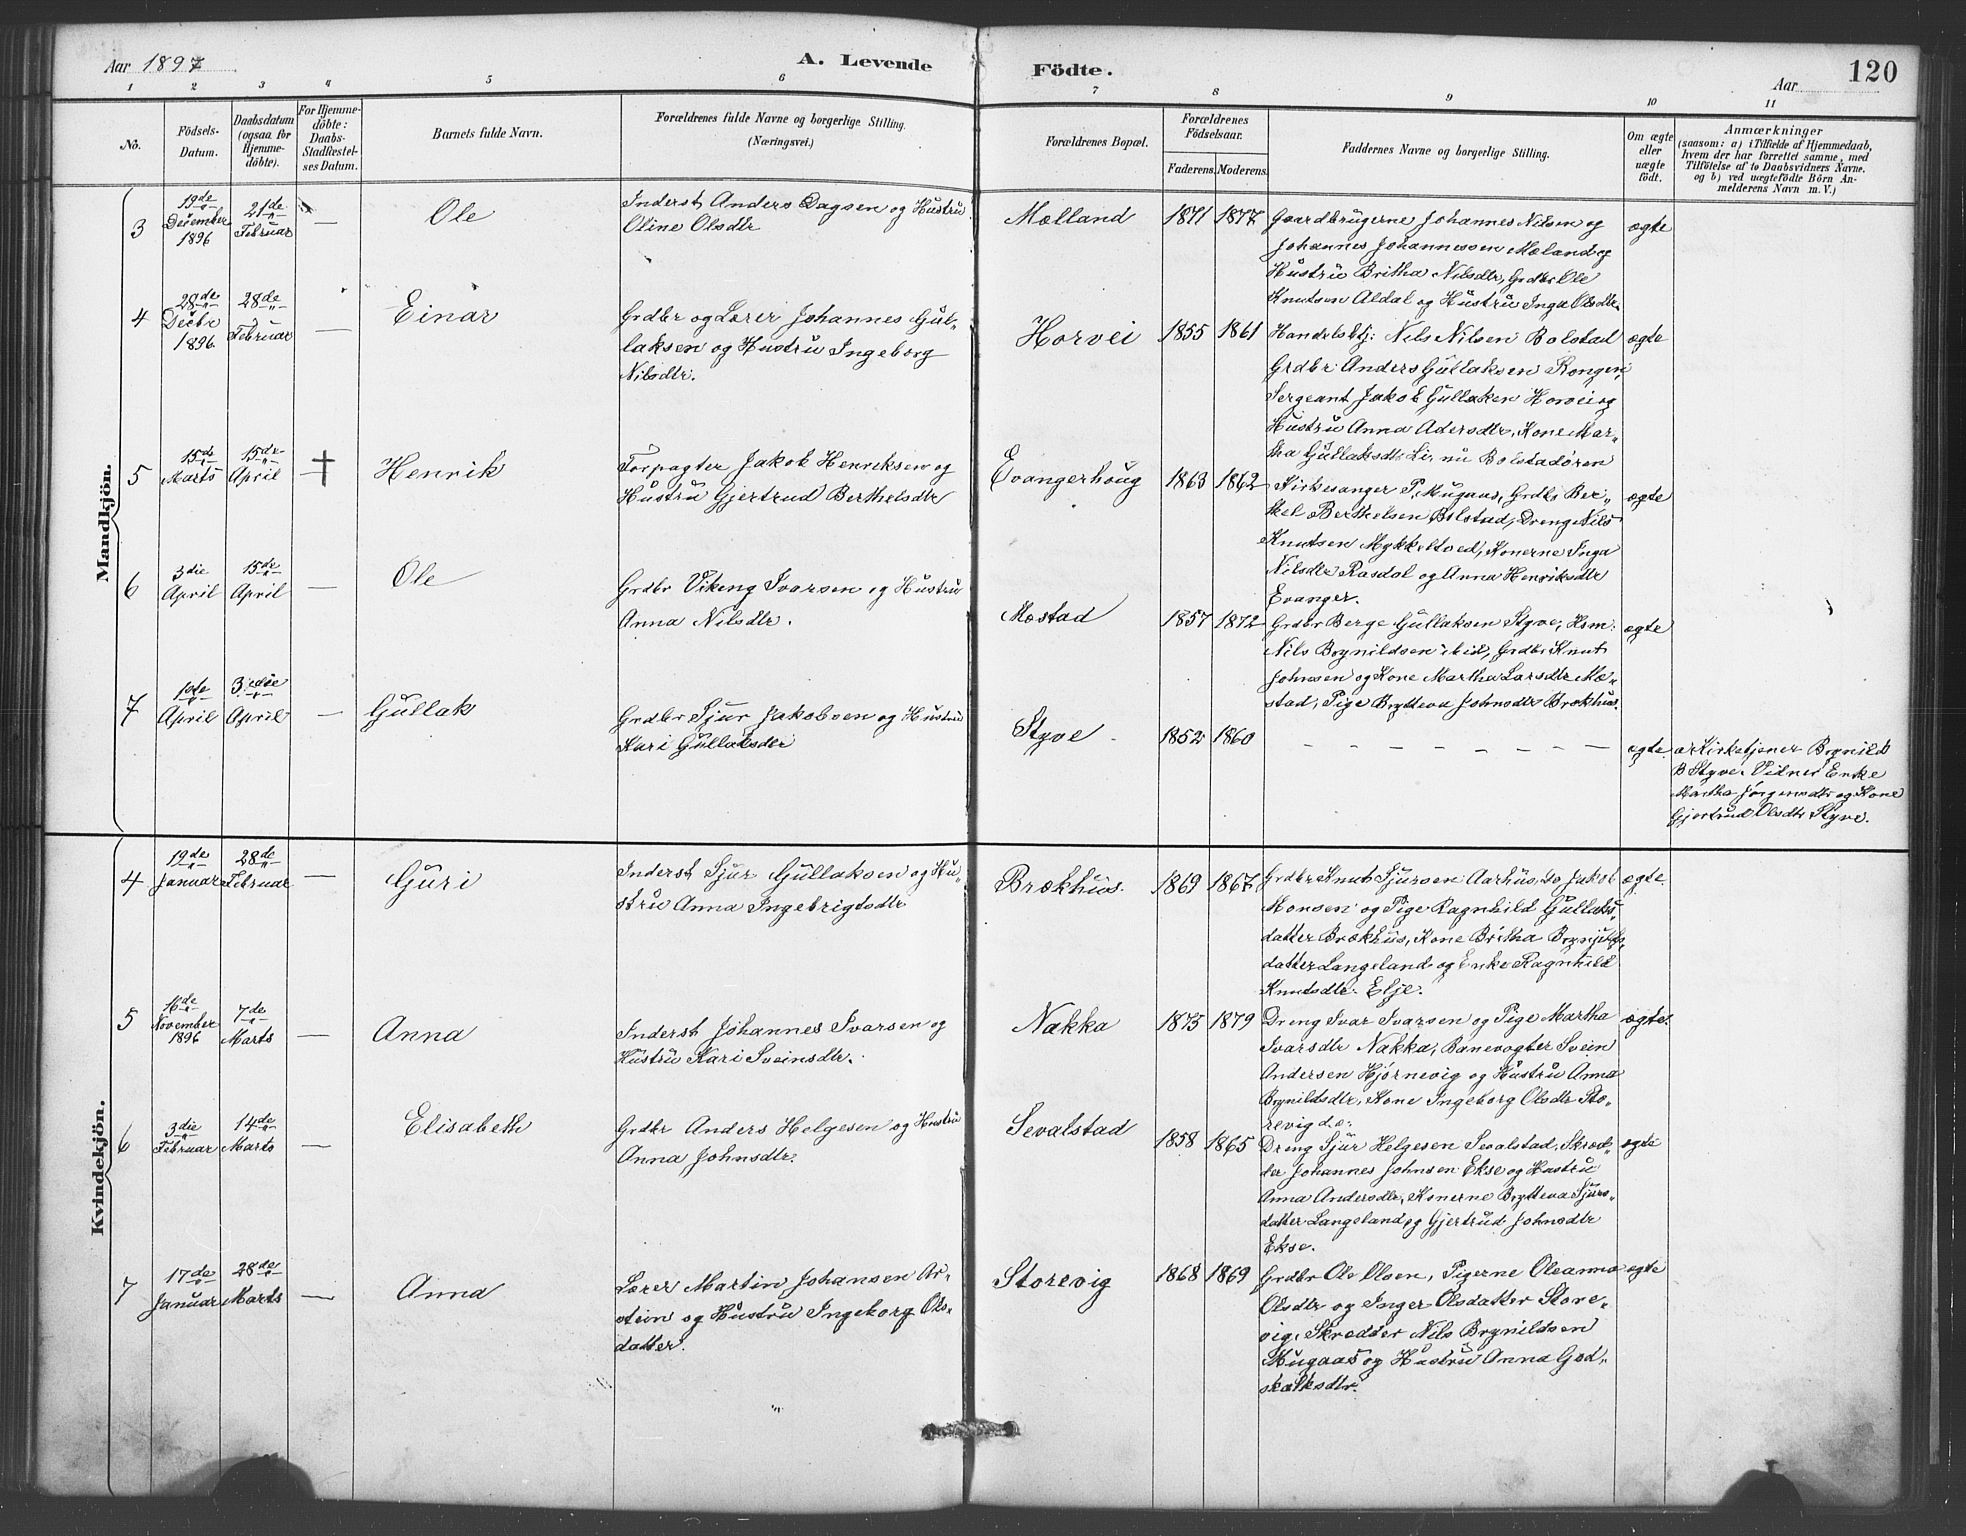 Aar 1897
A. Levende
Födte.
Aar
120
1 2 3 4 5 6 7 8 9 10 11
No.
Födsels-Datum.
Daabsdatum (ogsaa for Hjemme-döbte).
For Hjemme-döbte: Daabs-Stadfæstel-ses Datum.
Barnets fulde Navn.
Forældrenes fulde Navne og borgerlige Stilling.
(Næringsvei.)
Forældrenes Bopæl.
Forældrenes Födselsaar.
Faderens. Moderens.
Faddernes Navne og borgerlige Stilling.
Om ægte eller uægte födt.
Anmærkninger
(saasom: a) i Tilfælde af Hjemmedaab,
hvem der har forrettet samme, med
Tilföielse af to Daabsvidners Navne,
og b) ved uægtefödte Börn An-
melderens Navn m. V.)
Mandkjön.
3 19de December 1896 21de Februar — Ole
Inderst Anders Dagsen og Hustru
Oline Olsdtr
Mælland 1871 1877
Gaardbrugerne Johannes Nilsen og
Johannes Johannessen Mæland og
Hustru Britha Nilsdtr, Grdbr Ole
Knutsen Aldal og Hustru Inga Olsdtr.
ægte
4 28de Decbr 1896 28de Februar — Einar
Grdbr og Lærer Johannes Gul-
laksen og Hustru Ingeborg
Nilsdtr.
Horvei 1855 1861
Handelsbtj: Nils Nilsen Bolstad
Grdbr Anders Gullaksen Kongen,
Sergeant Jakob Gullaksen Horvei og
Hustru Anna Adersdtr, Kone Mar-
tha Gullaksdtr Li, nu Bolstadøren
ægte
5 15de Marts 15de April † Henrik
Forpagter Jakob Henriksen og
Hustru Gjertrud Berthelsdtr
Evangerhoug 1863 1862
Kirkesanger P. Mugaas, Grdbr Ber-
thel Berthelsen Bolstad, Dreng Nils
Knutsen Mykkeltved, Konerne Inga
Nilsdtr Rasdal og Anna Henriksdtr
Evanger.
ægte
6 3die April 15de April — Ole
Grdbr Viking Ivarsen og Hustru
Anna Nilsdtr.
Mæstad 1857 1872
Grdbr Berge Gullaksen Styve, Hsm.
Nils Brynildsen ibid, Grdbr Knut
Johnsen og Kone Martha Larsdtr Mæ-
stad, Pige Brytteva Johnsdtr Brækhus.
ægte
7 1ste April 3die April — Gullak
Grdbr Sjur Jakobsen og Hustru
Kari Gullaksdtr
Styve 1852 1860
— — — — — — — —
ægte
a Kirketjener Brynild
B Styve. Vidner Enke
Martha Jørgensdtr og Kone
Gjertrud Olsdtr Styve.
Kvindekjön.
4 19de Januar 28de Februar — Guri
Inderst Sjur Gullaksen og Hu-
stru Anna Ingebrigtsdtr
Brækhus. 1869 1867
Grdbr Knut Sjursen Aarhus, Do Jakob
Monsen og Pige Ragnhild Gullaks-
datter Brækhus, Kone Britha Brynjels-
datter Langeland og Enke Ragnhild
Knutsdtr. Elje.
ægte.
5 16de November 1896 7de Marts — Anna
Inderst Johannes Ivarsen og
Hustru Kari Sveinsdtr.
Nækka 1875 1879
Dreng Ivar Ivarsen og Pige Martha
Ivarsdtr Nækka, Banevogter Svein
Andersen Hjørnevig og Hustru Anna
Brynildsdtr, Kone Ingeborg Olsdtr Sto-
revig
ægte.
6 3die Februar 14de Marts — Elisabeth
Grdbr Anders Helgesen og Hustru
Anna Johnsdtr.
Sevalstad 1858 1865
Dreng Sjur Helgesen Sevalstad, Skræd-
der Johannes Johnsen Ekse og Hustru
Anna Andersdtr, Konerne Brytteva Sjurs-
datter Langeland og Gjertrud Johnsdtr
Ekse.
ægte
7 17de Januar 28de Marts — Anna
Lærer Martin Johansen Ar-
stein og Hustru Ingeborg Ols-
datter.
Storevig 1868 1869
Grdbr Ole Olsen, Pigerne Oleanna
Olsdtr og Inger Olsdatter Store-
vig, Skrædder Nils Brynildsen
Mugaas og Hustru Anna God-
skalksdtr.
ægte